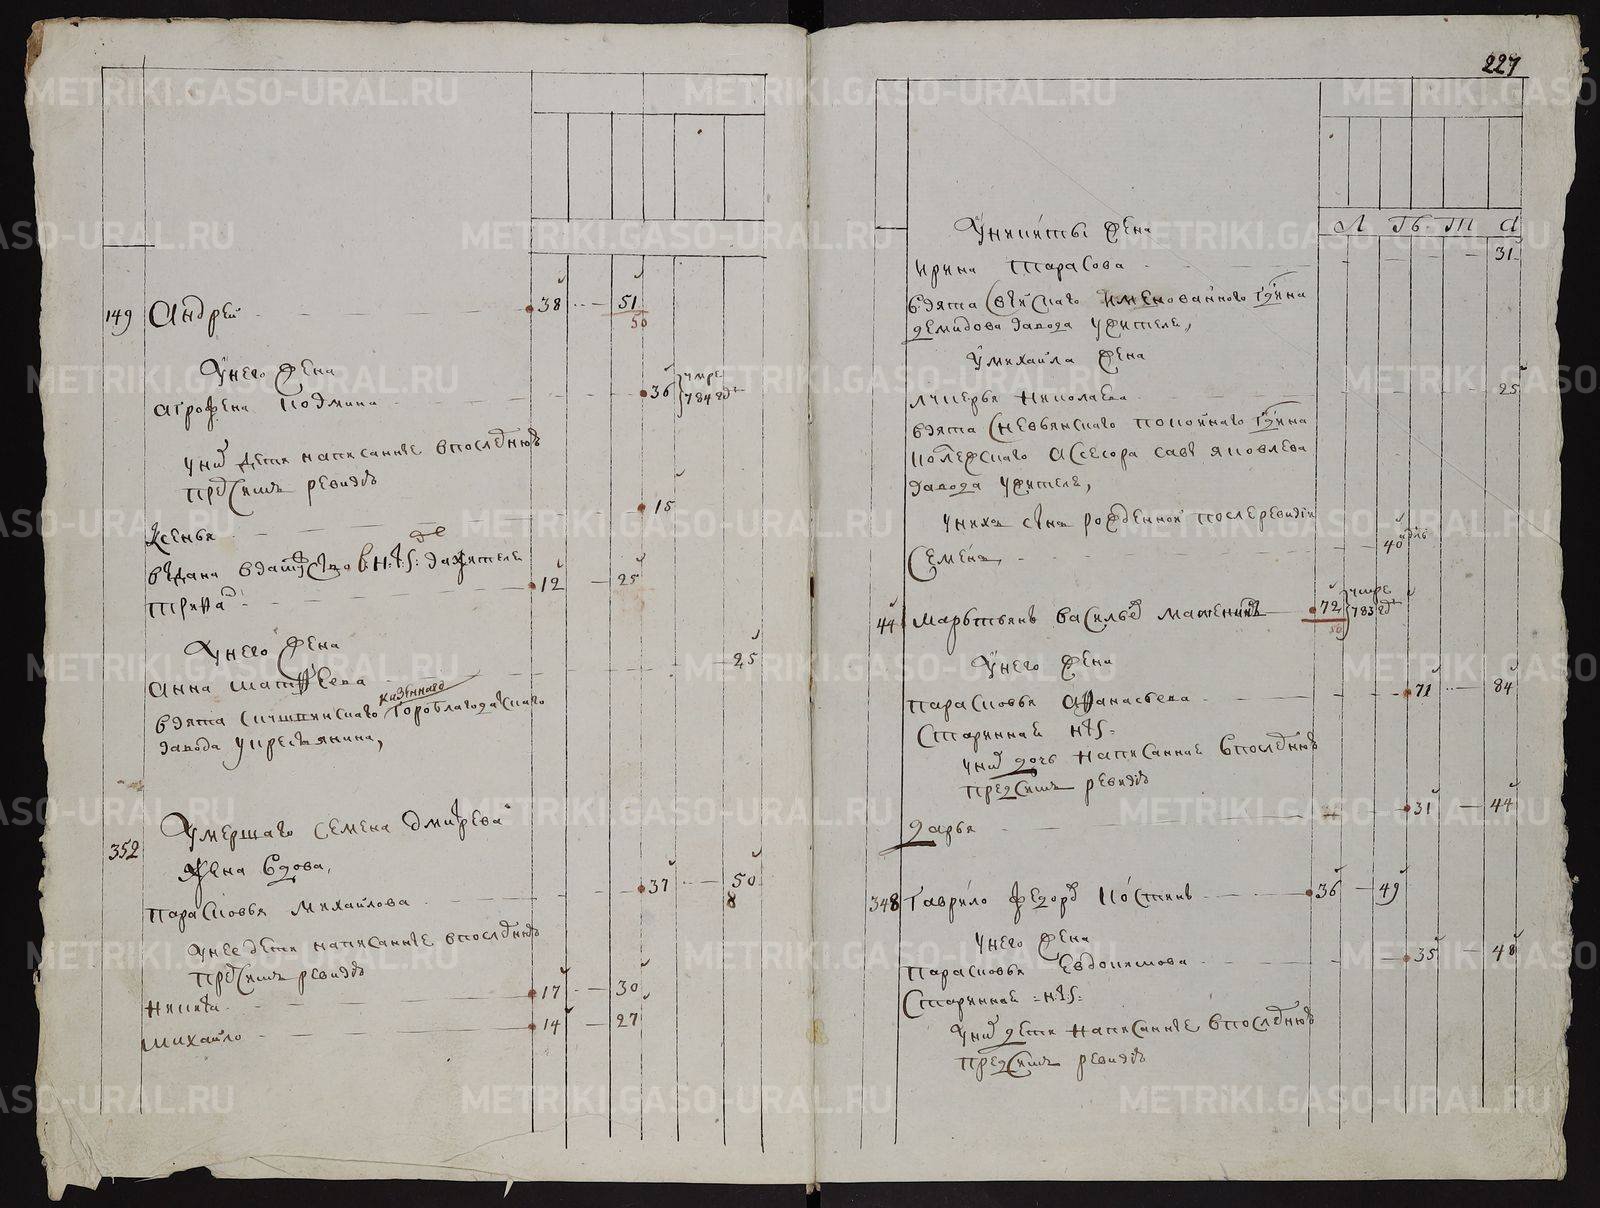 149 Андрей 38 51
50
У него жена
Агрофена Кодмина 36 умре
784 году
У них дети написанные в последнюю
пред сим ревизию
Ксенья 15
выдана в замужство в Н:т:ж: за жителе
Трифан 12 25
У него жена
Анна Матфеева 25
казенного
взята с Кушвинскаго Гороблагодацкаго
завода у крестьянина,
352 Умершаго Семена Дмитрева
жена вдова,
Парасковья Михайлова 37 50
8
У нее дети написанные в последнюю
пред сим ревизию
Никита 17 30
Михайло 14 27
227
У Никиты жена
Л ГБ Т А
Ирина Тарасова 31
взята с имянованного Г:дина
Демидова завода у жителя,
У Михаила жена
Лукерья Николаева 25
взята с Невьянскаго покойнаго Г:дина
Колежскаго Асесора Савы Яковлева
завода у жителя,
У них сына рожденной после ревизии
Семена 40
44 Мартьян Васильев 72 умре
783 году
50
У него жена
Парасковья Афанасьева 71 84
Старинная
У них дочь написанная в последнюю
пред сим ревизию
Дарья 31 44
348 Гаврило Федоров Костин 36 49
У него жена
Парасковья Евдокимова 35 48
Старинная
У них дети написанные в последнюю
пред сим ревизию
METRIKI.GASO-URAL.RU